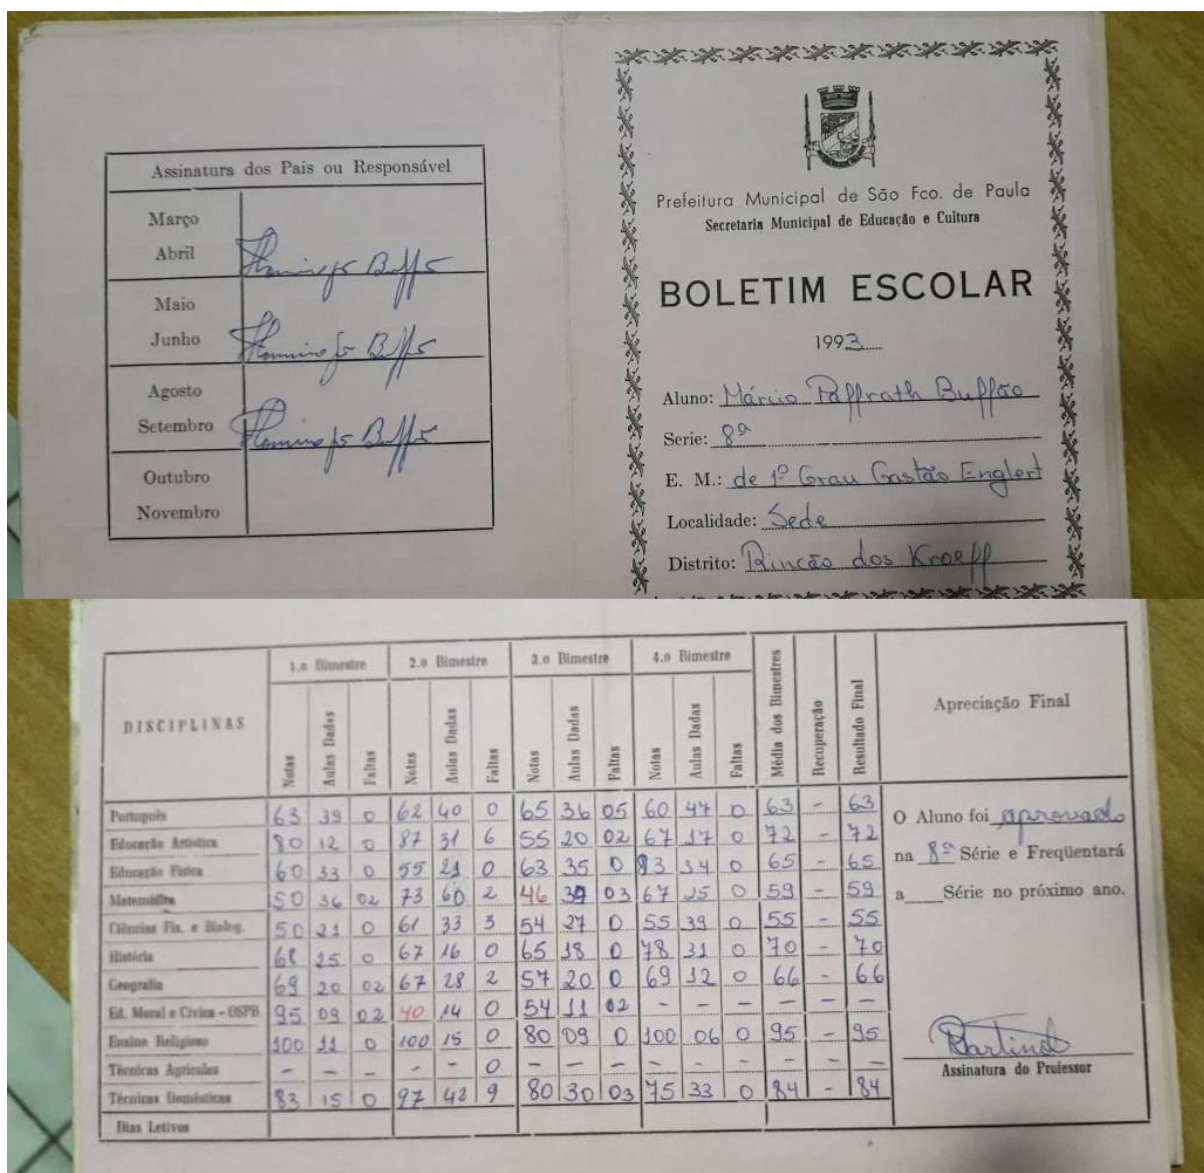 Assinatura dos Pais ou Responsável
Março
Abril
Maio
Junho
Agosto
Setembro
Outubro
Novembro
Prefeitura Municipal de São Fco. de Paula
Secretaria Municipal de Educação e Cultura
BOLETIM ESCOLAR
1993
Aluno: Márcio Paffrath Buffão
Serie: 8ª
E. M.: de 1º Grau Gastão Englert
Localidade: Sede
Distrito: Rincão dos Kroeff
DISCIPLINAS 1.o Bimestre 2.o Bimestre 3.o Bimestre 4.o Bimestre Média dos Bimestres Recuperação Resultado Final Apreciação Final
Notas Aulas Dadas Faltas Notas Aulas Dadas Faltas Notas Aulas Dadas Faltas Notas Aulas Dadas Faltas
Português 63 39 0 62 40 0 65 36 05 60 47 0 63 - 63
Educação Artística 80 12 0 87 31 6 55 20 02 67 17 0 72 - 72
Educação Física 60 33 0 55 21 0 63 35 0 83 34 0 65 - 65
Matemática 50 36 02 73 60 2 46 39 03 67 25 0 59 - 59
Ciências Fís. e Biolog. 50 21 0 61 33 3 54 27 0 55 39 0 55 - 55
História 68 25 0 67 16 0 65 18 0 78 31 0 70 - 70
Geografia 69 20 02 67 28 2 57 20 0 69 12 0 66 - 66
Ed. Moral e Cívica - OSPB 95 09 02 40 14 0 54 11 02 - - - - - -
Ensino Religioso 100 11 0 100 15 0 80 09 0 100 06 0 95 - 95
Técnicas Agrícolas - - - - - 0 - - - - - - - - -
Técnicas Domésticas 83 15 0 97 42 9 80 30 03 75 33 0 84 - 84
Dias Letivos
O Aluno foi aprovado
na 8ª Série e Freqüentará
a Série no próximo ano.
Assinatura do Professor